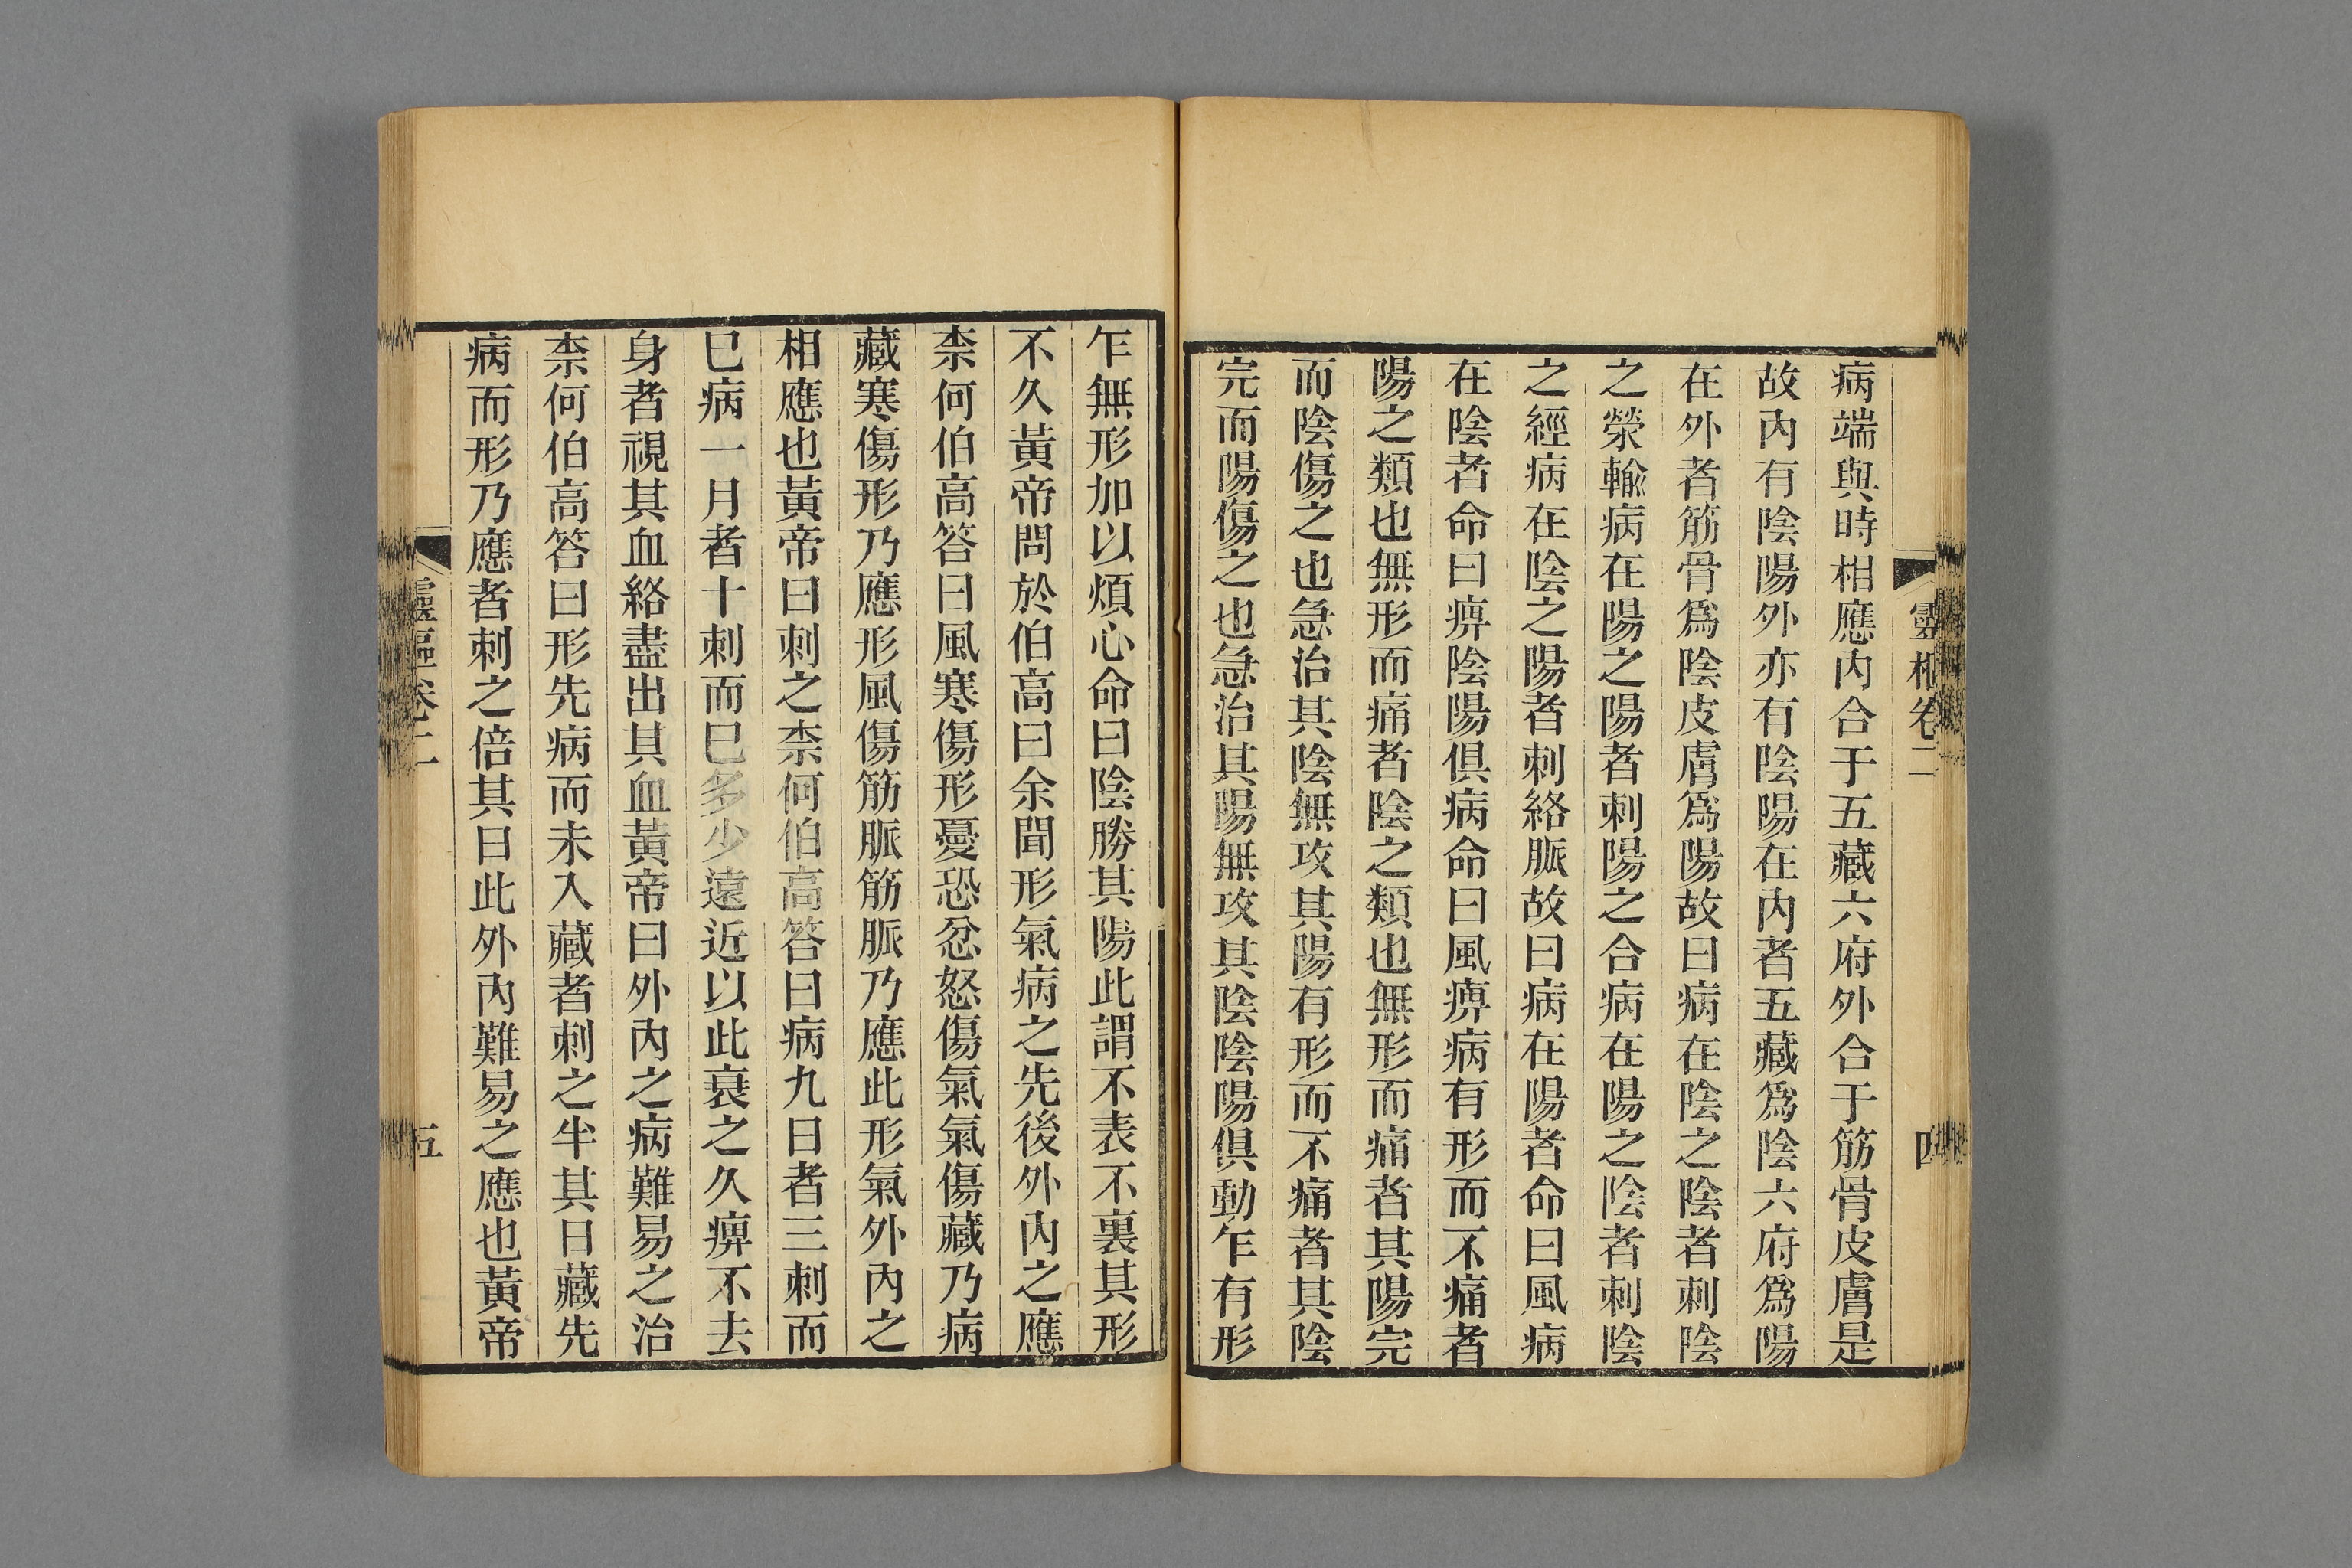 靈樞卷二
四
病端與時相應內合于五藏六府外合于筋骨皮膚是
故內有陰陽外亦有陰陽在內者五藏爲陰六府爲陽
在外者筋骨爲陰皮膚爲陽故曰病在陰之陰者刺陰
之滎輸病在陽之陽者刺陽之合病在陽之陰者刺陰
之經病在陰之陽者刺絡脈故曰病在陽者命曰風病
在陰者命曰痹陰陽俱病命曰風痹病有形而不痛者
陽之類也無形而痛者陰之類也無形而痛者其陽完
而陰傷之也急治其陰無攻其陽有形而不痛者其陰
完而陽傷之也急治其陽無攻其陰陰陽俱動乍有形
乍無形加以煩心命曰陰勝其陽此謂不表不裏其形
不久黃帝問於伯高曰余聞形氣病之先後外內之應
柰何伯高答曰風寒傷形憂恐忿怒傷氣氣傷藏乃病
藏寒傷形乃應形風傷筋脈筋脈乃應此形氣外內之
相應也黃帝曰刺之柰何伯高答曰病九日者三刺而
已病一月者十刺而已多少遠近以此衰之久痹不去
身者視其血絡盡出其血黃帝曰外內之病難易之治
柰何伯高答曰形先病而未入藏者刺之半其日藏先
病而形乃應者刺之倍其日此外內難易之應也黃帝
靈樞卷二
五